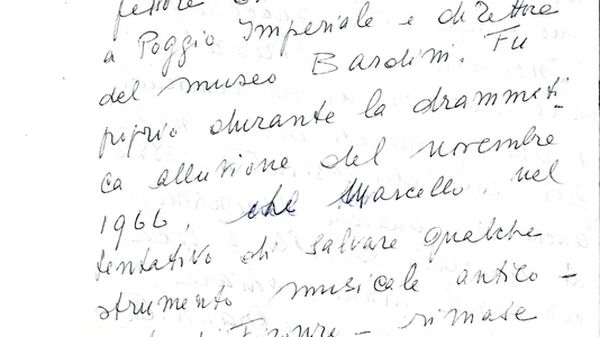 a Poggio Imperiale e direttore
del museo Bardini. Fu
proprio durante la drammati-
ca alluvione del novembre
1966, che Marcello, nel
tentativo di salvare qualche
strumento musicale antico -
Firenze - rimase